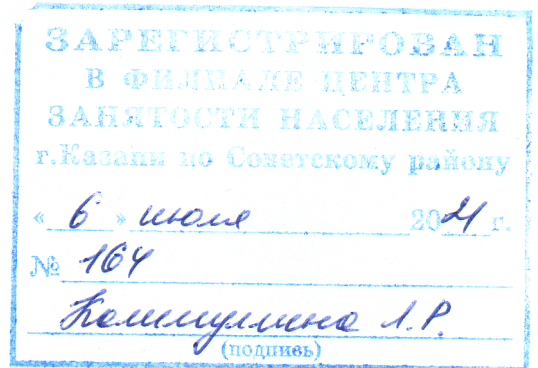 ЗАРЕГИСТРИРОВАН
В ФИЛИАЛЕ ЦЕНТРА
ЗАНЯТОСТИ НАСЕЛЕНИЯ
г.Казани по Советскому району
«6» июля 2021 г.
№ 164
Л.Р.
(подпивь)